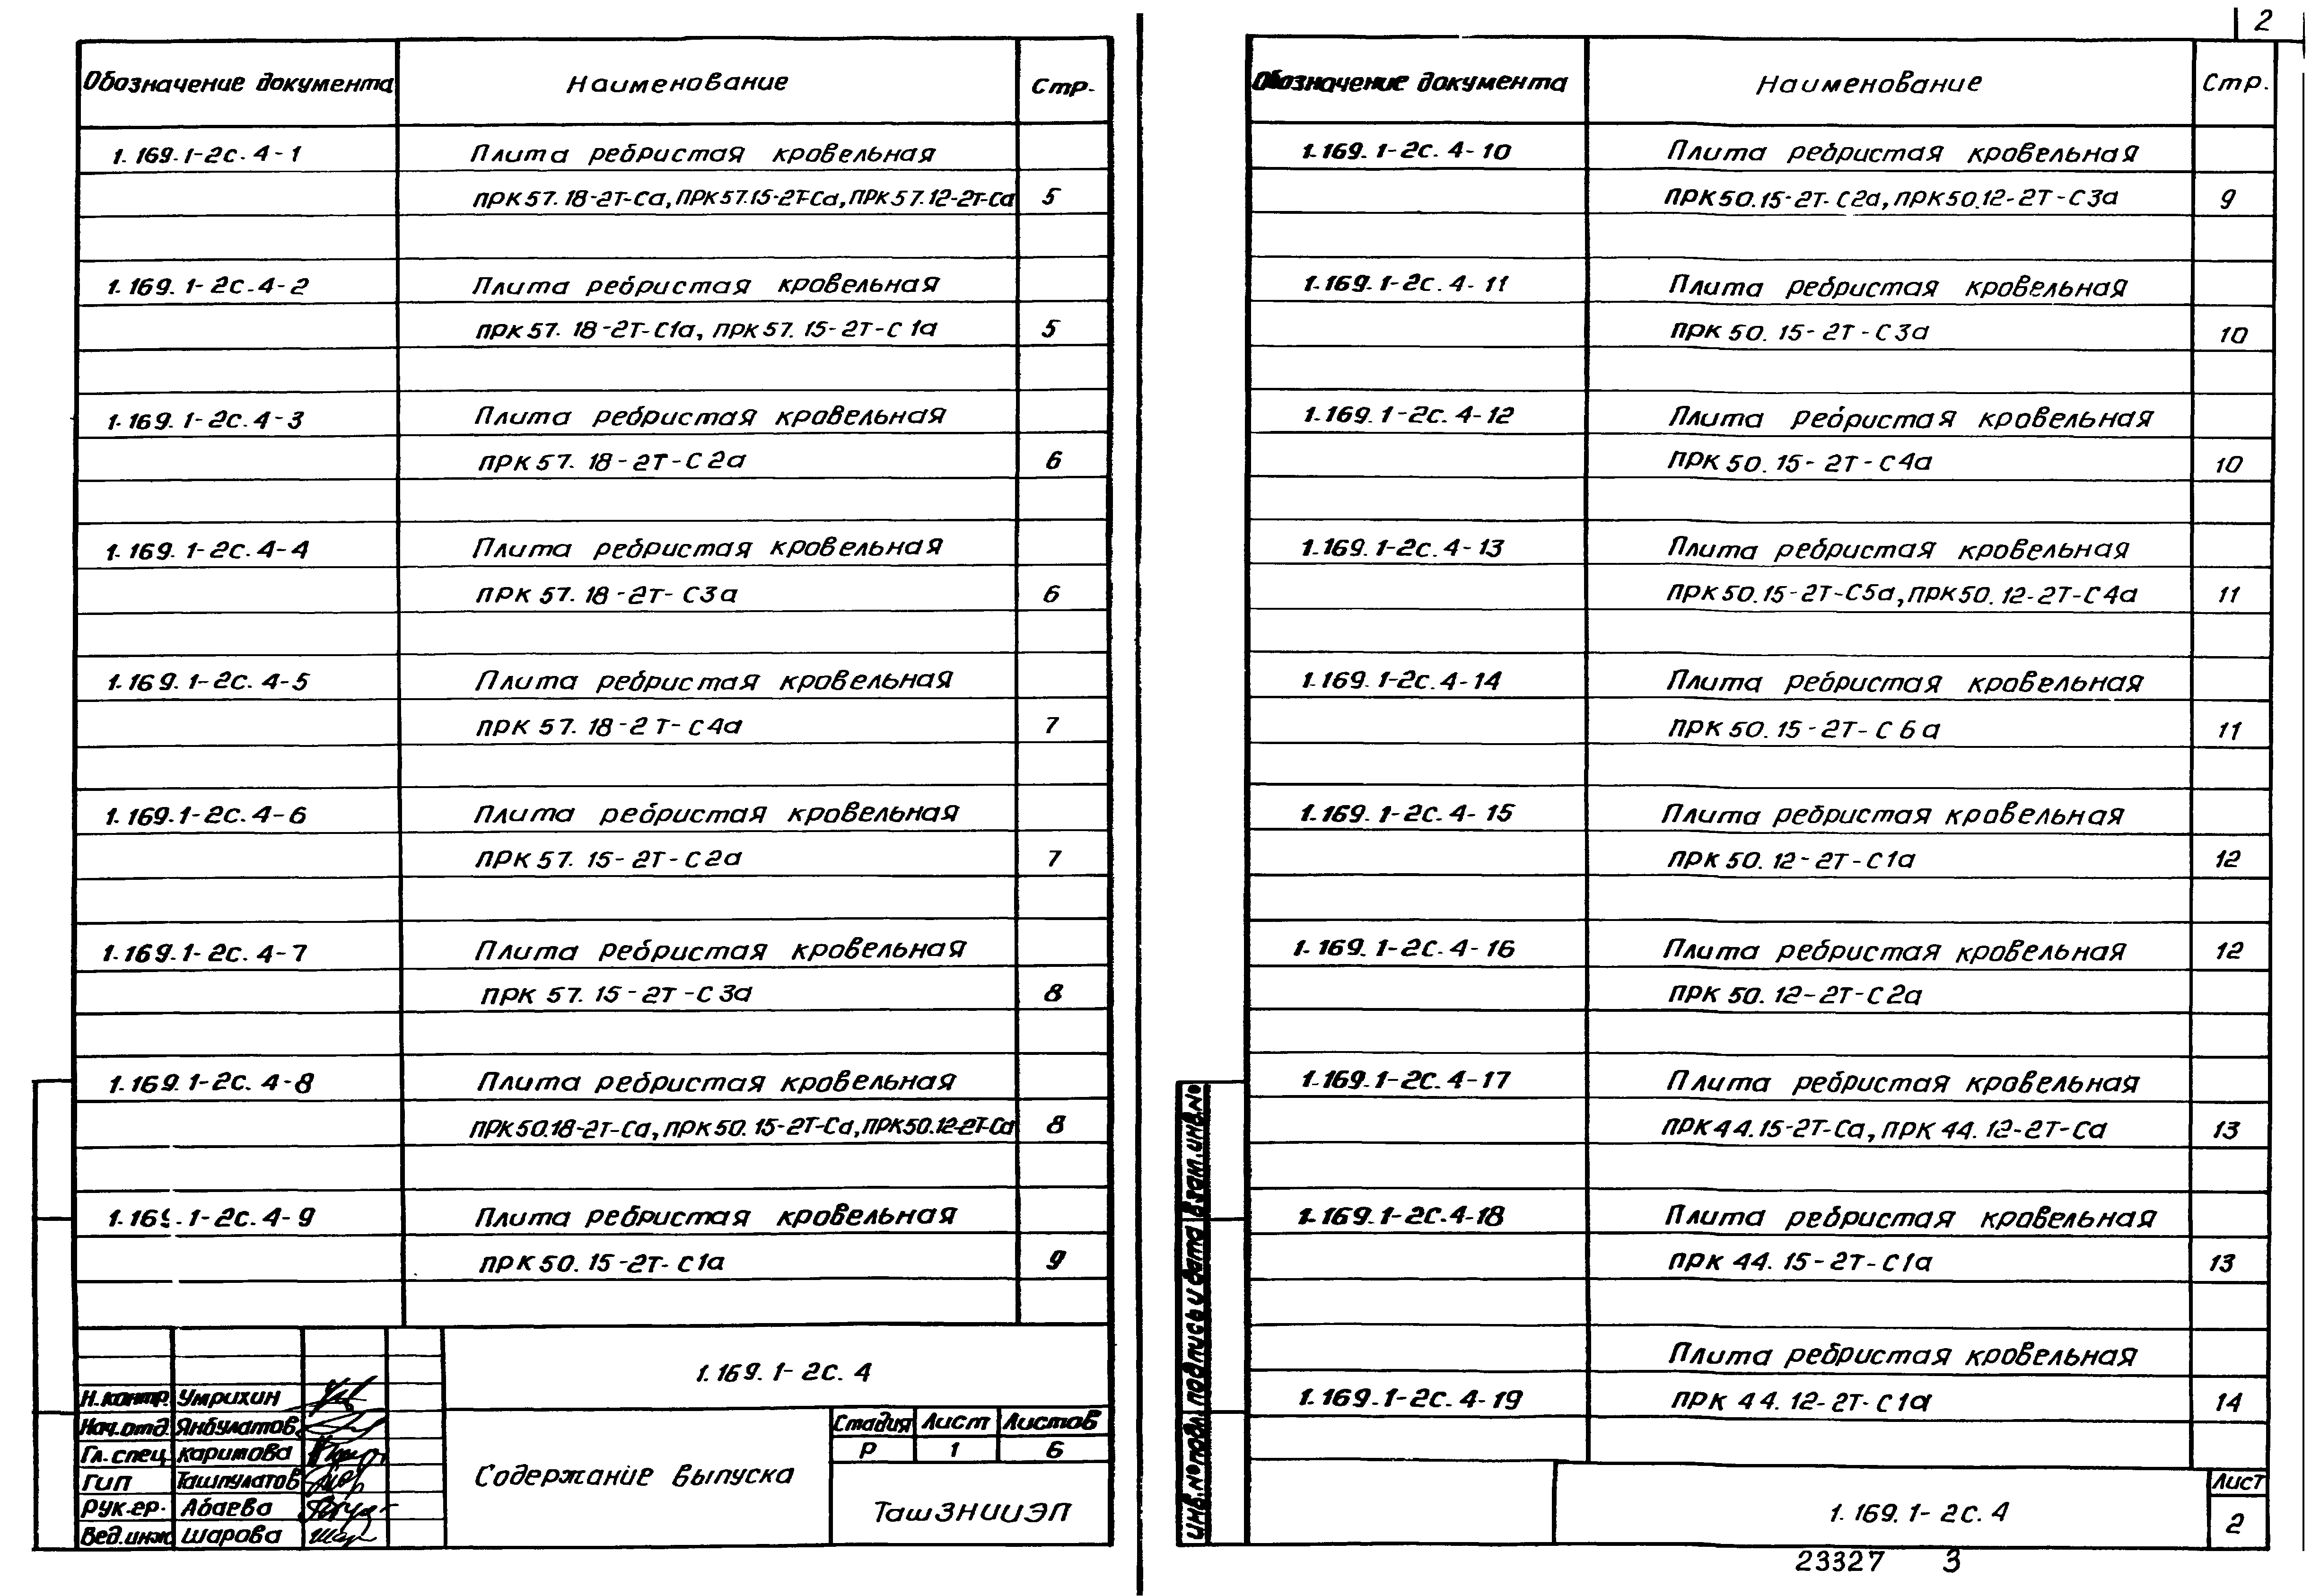 Обозначение документа Наименование Стр.
1.169.1-2с.4-1 Плита ребристая кровельная
ПРК57.18-2Т-Са, ПРК57.15-2Т-Са, ПРК57.12-2Т-Са 5
1.169.1-2с.4-2 Плита ребристая кровельная
ПРК57.18-2Т-С1а, ПРК57.15-2Т-С1а 5
1.169.1-2с.4-3 Плита ребристая кровельная
ПРК57.18-2Т-С2а 6
1.169.1-2с.4-4 Плита ребристая кровельная
ПРК57.18-2Т-С3а 6
1.169.1-2с.4-5 Плита ребристая кровельная
ПРК57.18-2Т-С4а 7
1.169.1-2с.4-6 Плита ребристая кровельная
ПРК57.15-2Т-С2а 7
1.169.1-2с.4-7 Плита ребристая кровельная
ПРК57.15-2Т-С3а 8
1.169.1-2с.4-8 Плита ребристая кровельная
ПРК50.18-2Т-Са, ПРК50.15-2Т-Са, ПРК50.12-2Т-Са 8
1.169.1-2с.4-9 Плита ребристая кровельная
ПРК50.15-2Т-С1а 9
1.169.1-2с.4
Н.контр. Умрихин
Нач.отд. Янбулатов
Гл.спец. Каримова
ГИП Ташпулатов
Рук.гр. Абаева
Вед.инж Шарова
Содержание выпуска
Стадия Лист Листов
Р 1 6
ТашЗНИИЭП
2
Обозначение документа Наименование Стр.
1.169.1-2с.4-10 Плита ребристая кровельная
ПРК50.15-2Т-С2а, ПРК50.12-2Т-С3а 9
1.169.1-2с.4-11 Плита ребристая кровельная
ПРК50.15-2Т-С3а 10
1.169.1-2с.4-12 Плита ребристая кровельная
ПРК50.15-2Т-С4а 10
1.169.1-2с.4-13 Плита ребристая кровельная
ПРК50.15-2Т-С5а, ПРК50.12-2Т-С4а 11
1.169.1-2с.4-14 Плита ребристая кровельная
ПРК50.15-2Т-С6а 11
1.169.1-2с.4-15 Плита ребристая кровельная
ПРК50.12-2Т-С1а 12
1.169.1-2с.4-16 Плита ребристая кровельная 12
ПРК50.12-2Т-С2а
1.169.1-2с.4-17 Плита ребристая кровельная
ПРК44.15-2Т-Са, ПРК44.12-2Т-Са 13
1.169.1-2с.4-18 Плита ребристая кровельная
ПРК44.15-2Т-С1а 13
Плита ребристая кровельная
1.169.1-2с.4-19 ПРК44.12-2Т-С1а 14
Инв.№подл. Подпись и дата Взам.инв.№
1.169.1-2с.4
Лист
2
23327 3